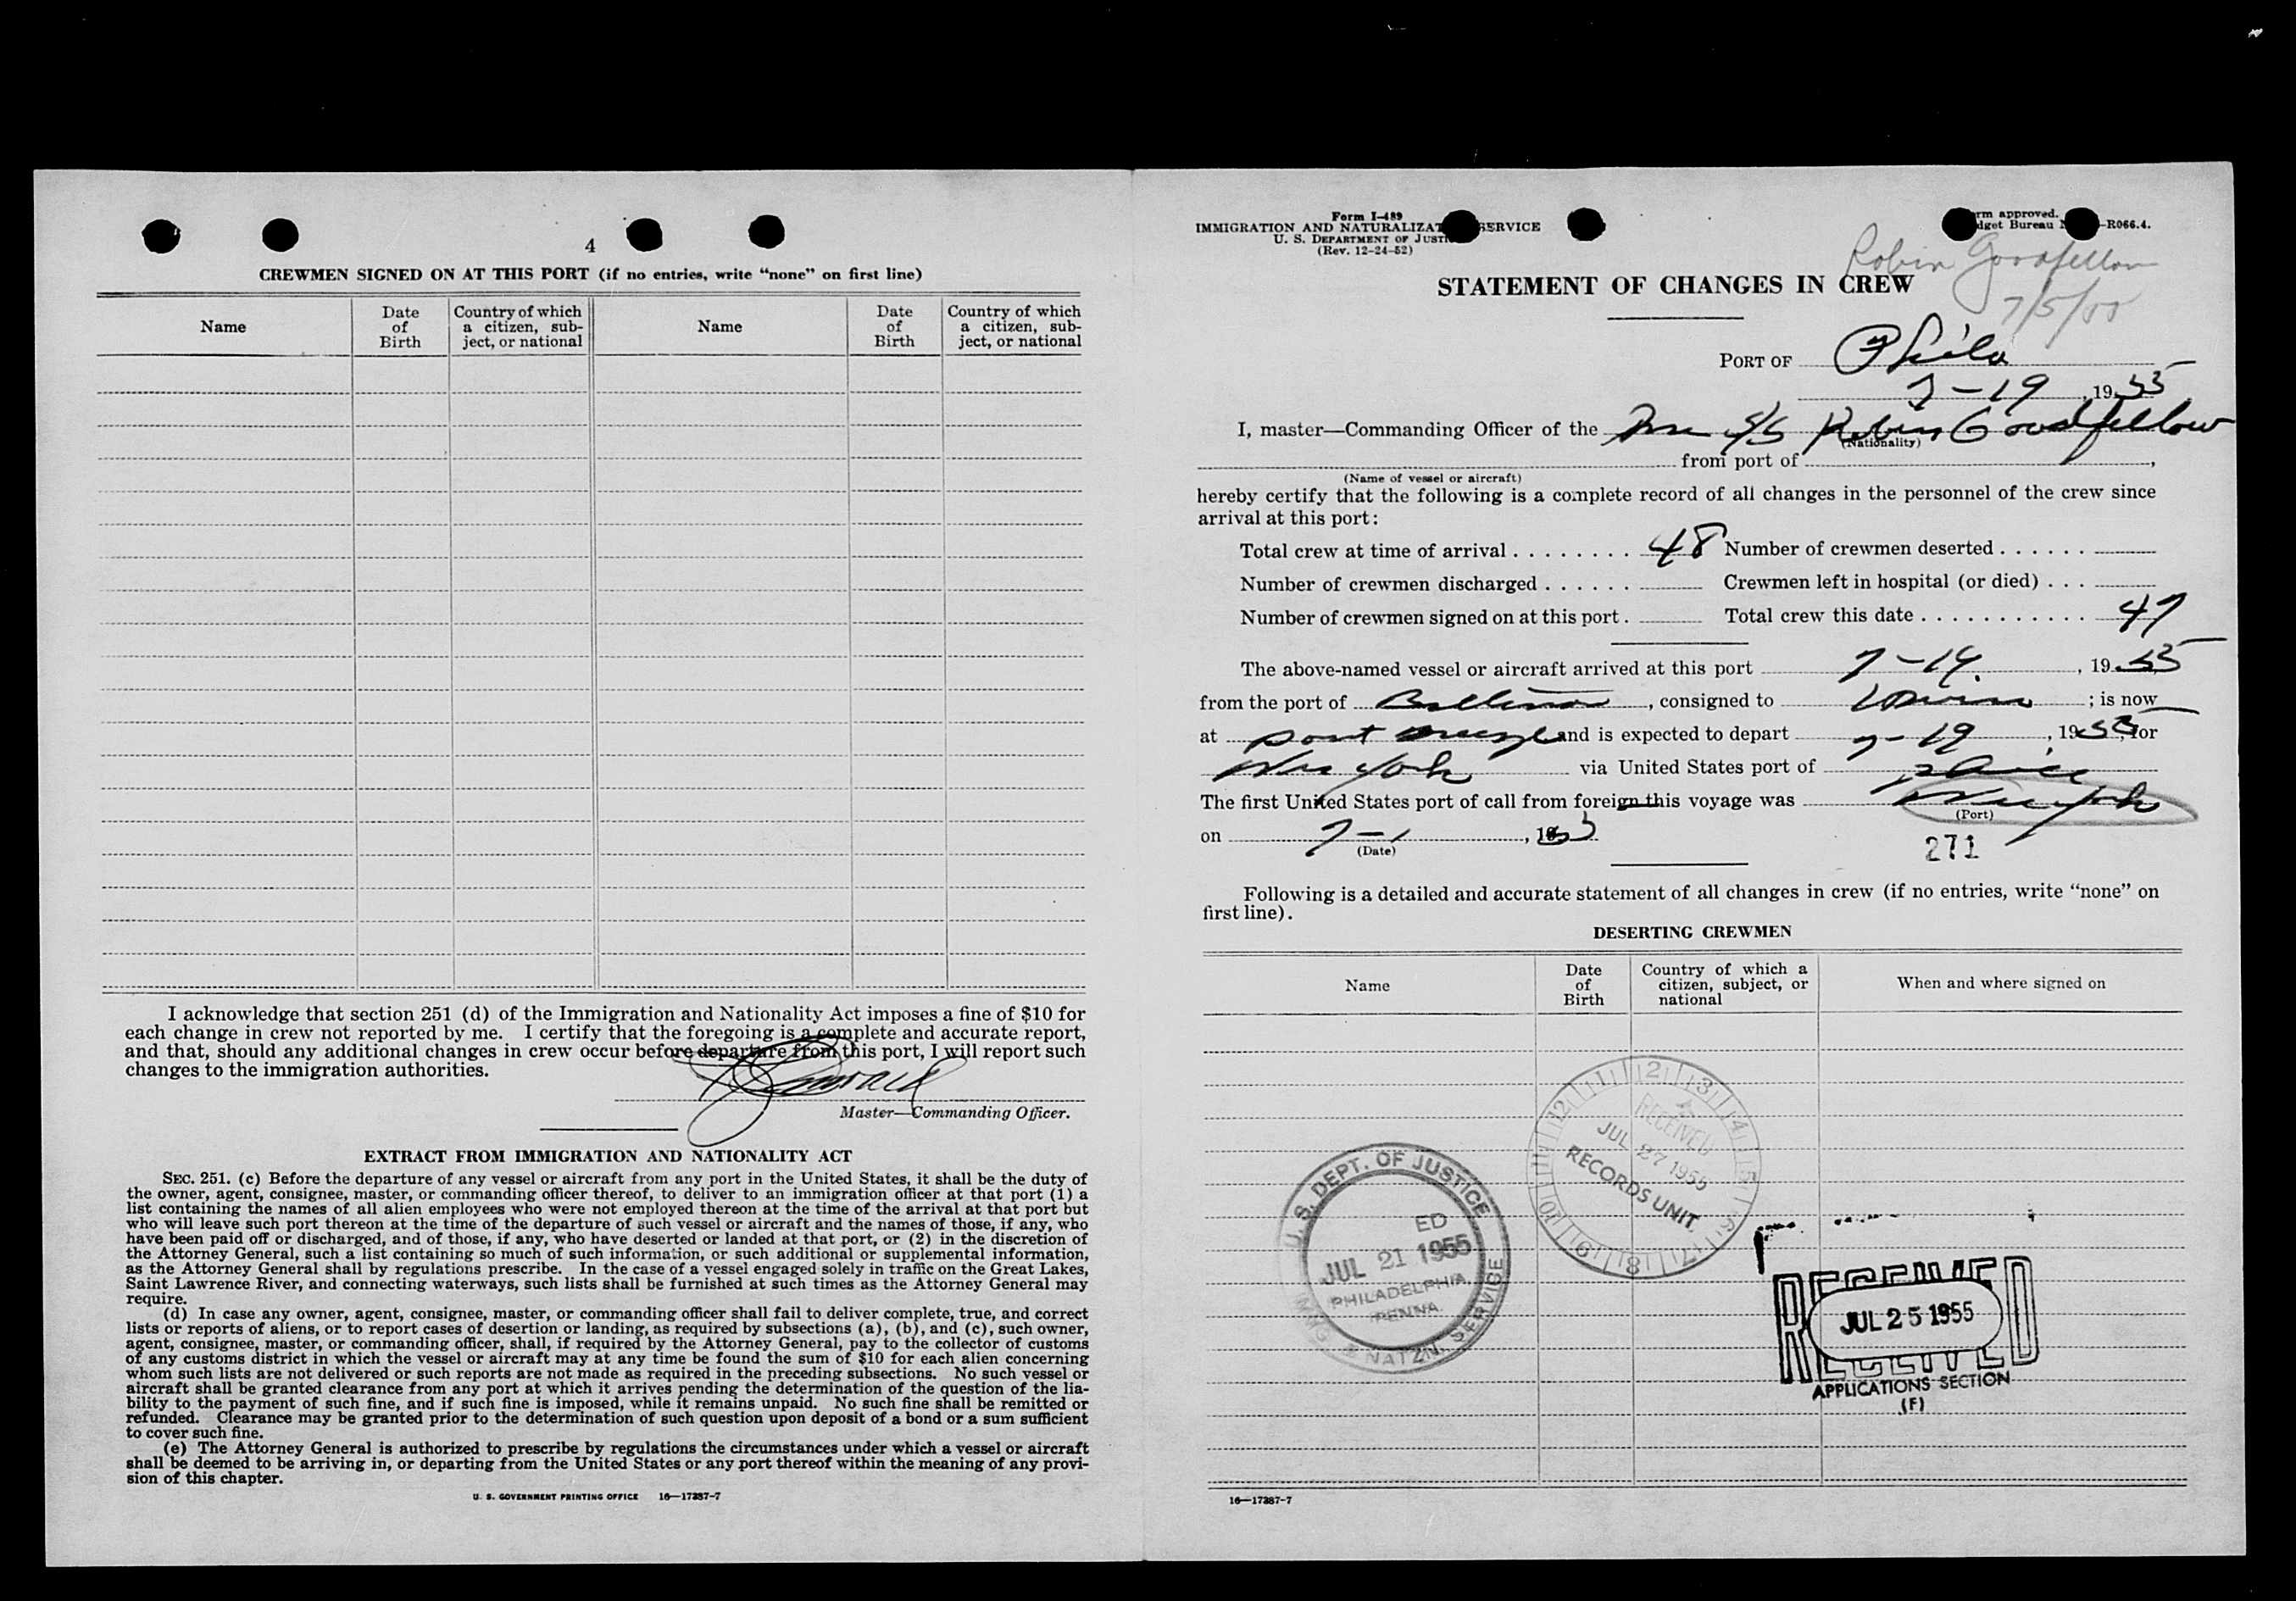 4
CREWMEN SIGNED ON AT THIS PORT (if no entries, write “none” on first line)
Name
Date of Birth
Country of which a citizen, sub-ject, or national
Name
Date of Birth
Country of which a citizen, sub-ject, or national
I acknowledge that section 251 (d) of the Immigration and Nationality Act imposes a fine of $10 for
each change in crew not reported by me. I certify that the foregoing is a complete and accurate report,
and that, should any additional changes in crew occur before departure from this port, I will report such
changes to the immigration authorities.
Master—Commanding Officer.
EXTRACT FROM IMMIGRATION AND NATIONALITY ACT
SEC. 251. (c) Before the departure of any vessel or aircraft from any port in the United States, it shall be the duty of
the owner, agent, consignee, master, or commanding officer thereof, to deliver to an immigration officer at that port (1) a
list containing the names of all alien employees who were not employed thereon at the time of the arrival at that port but
who will leave such port thereon at the time of the departure of such vessel or aircraft and the names of those, if any, who
have been paid off or discharged, and of those, if any, who have deserted or landed at that port, or (2) in the discretion of
the Attorney General, such a list containing so much of such information, or such additional or supplemental information,
as the Attorney General shall by regulations prescribe. In the case of a vessel engaged solely in traffic on the Great Lakes,
Saint Lawrence River, and connecting waterways, such lists shall be furnished at such times as the Attorney General may
require.
(d) In case any owner, agent, consignee, master, or commanding officer shall fail to deliver complete, true, and correct
lists or reports of aliens, or to report cases of desertion or landing, as required by subsections (a), (b), and (c), such owner,
agent, consignee, master, or commanding officer, shall, if required by the Attorney General, pay to the collector of customs
of any customs district in which the vessel or aircraft may at any time be found the sum of $10 for each alien concerning
whom such lists are not delivered or such reports are not made as required in the preceding subsections. No such vessel or
aircraft shall be granted clearance from any port at which it arrives pending the determination of the question of the lia-
bility to the payment of such fine, and if such fine is imposed, while it remains unpaid. No such fine shall be remitted or
refunded. Clearance may be granted prior to the determination of such question upon deposit of a bond or a sum sufficient
to cover such fine.
(e) The Attorney General is authorized to prescribe by regulations the circumstances under which a vessel or aircraft
shall be deemed to be arriving in, or departing from the United States or any port thereof within the meaning of any provi-
sion of this chapter.
U. S. GOVERNMENT PRINTING OFFICE 16—17287-7
Form I-489
IMMIGRATION AND NATURALIZAT SERVICE
U. S. DEPARTMENT OF JUSTI
(Rev. 12-24-52)
rm approved.
dget Bureau N -R066.4.
Robin Goodfellow
7/5/55
STATEMENT OF CHANGES IN CREW
PORT OF Phila
7-19, 1955
I, master—Commanding Officer of the S/S Robin Goodfellow
(Nationality)
from port of ,
(Name of vessel or aircraft)
hereby certify that the following is a complete record of all changes in the personnel of the crew since
arrival at this port:
Total crew at time of arrival 48 Number of crewmen deserted
Number of crewmen discharged Crewmen left in hospital (or died)
Number of crewmen signed on at this port. Total crew this date 47
The above-named vessel or aircraft arrived at this port 7-14, 1955
from the port of Baltimore, consigned to ; is now
at port and is expected to depart 7-19, 1955, for
New York via United States port of
The first United States port of call from foreign this voyage was New York
(Port)
on 7-1, 19
(Date)
271
Following is a detailed and accurate statement of all changes in crew (if no entries, write “none” on
first line).
DESERTING CREWMEN
Name
Date of Birth
Country of which a citizen, subject, or national
When and where signed on
RECEIVED
JUL 27 1955
RECORDS UNIT.
U. S. DEPT. OF JUSTICE
ED
JUL 21 1955
PHILADELPHIA,
PENNA.
IMMIG. & NATZN. SERVICE
RECEIVED
JUL 25 1955
RECEIVED
APPLICATIONS SECTION
(F)
16—17287-7